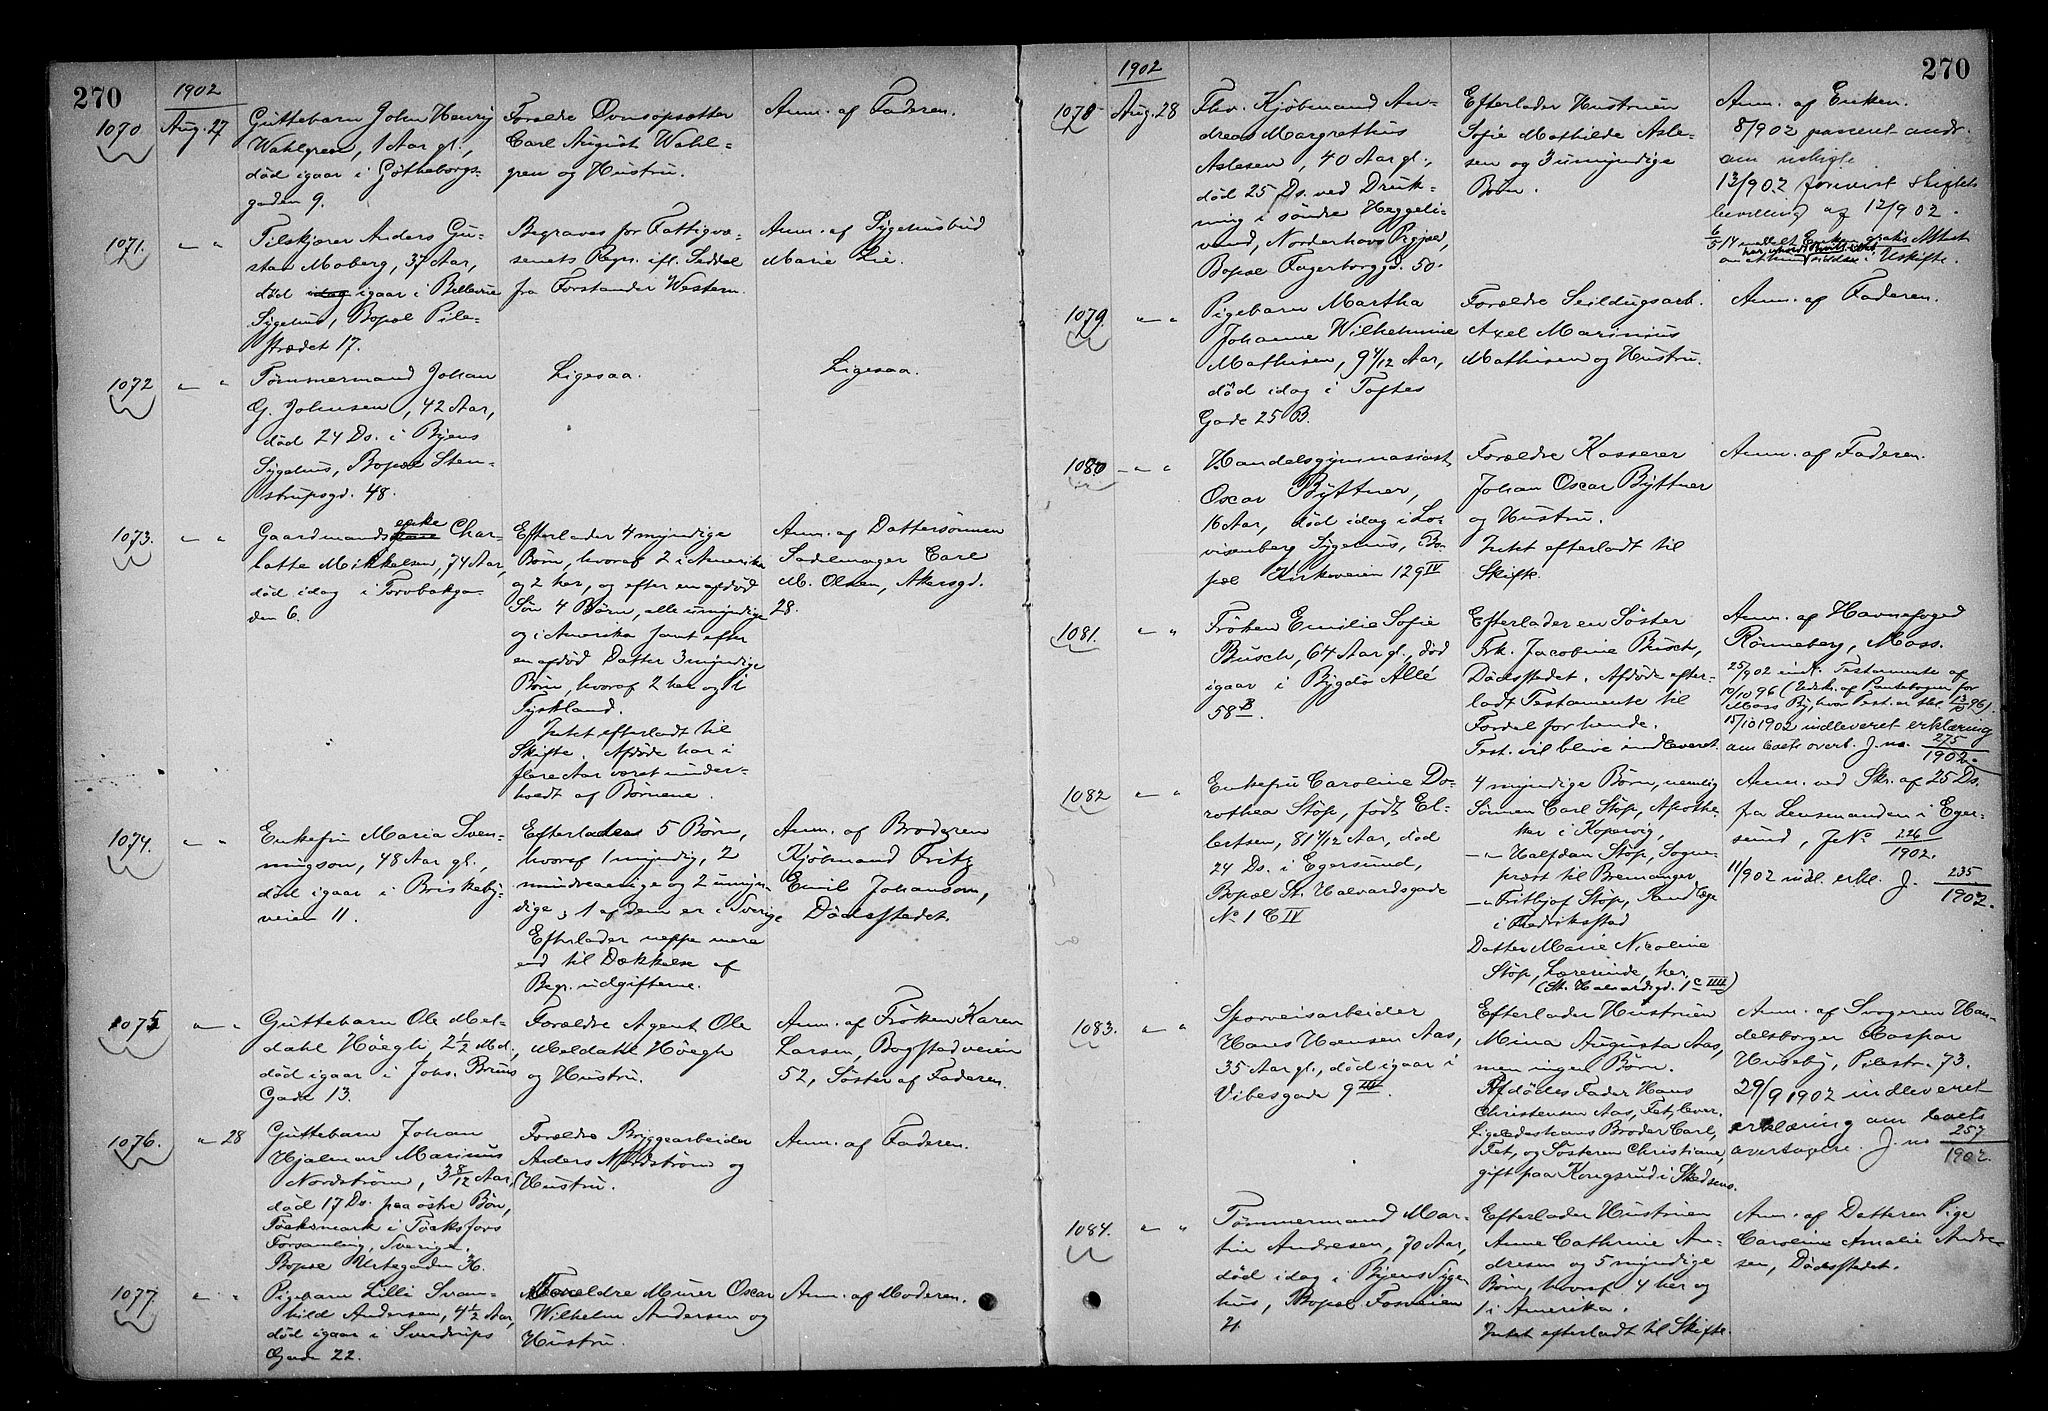 270
1902
1070
Aug. 27
Guttebarn John Henry
Wahlgren, 1 Aar gl.,
død igaar i Gøtheborgs-
gaden 9.
Forældre Ovnsopsætter
Carl August Wahl-
gren og Hustru.
Anm. af Faderen.
1071.
" "
Tilskjærer Anders Gu-
stav Moberg, 37 Aar,
død idag igaar i Bellevue
Sygehus, Bopæl Pile-
strædet 17.
Begraves for Fattigvæ-
senets Regn. ifl. Seddel
fra Forstander Western.
Anm. af Sygehusbud
Marie Lie.
1072
" "
Tømmermand Johan
G. Johnsen, 42 Aar,
død 24 Ds. i Byens
Sygehus, Bopæl Sten-
strupsgd. 48.
Ligesaa.
Ligesaa.
1073.
" "
enke
Gaardmands Char-
lotte Mikkelsen, 74 Aar,
død idag i Torvbakga-
den 6.
Efterlader 4 myndige
Børn, hvoraf 2 i Amerika
og 2 her, og efter en afdød
Søn 4 Børn, alle umyndige
og i Amerika samt efter
en afdød Datter 3 myndige
Børn, hvoraf 2 her og 1 i
Tyskland.
Intet efterladt til
Skifte. Afdøde har i
flere Aar været under-
holdt af Børnene.
Anm. af Dattersønnen
Sadelmager Carl
M. Olsen, Akersgd.
28.
1074.
" "
Enkefru Maria Sven-
ningson, 48 Aar gl.,
død igaar i Briskeby-
veien 11.
Efterlader 5 Børn,
hvoraf 1 myndig, 2
mindreaarige og 2 umyn-
dige; 1 af dem er i Sverige
Efterlader neppe mere
end til Dækkelse af
Begr. udgifterne.
Anm. af Broderen
Kjøbmand Fritz
Emil Johanson,
Dødsstedet.
1075
" "
Guttebarn Ole Mel-
dahl Høegh, 2 1/2 Md.,
død igaar i Johs. Bruns
Gade 13.
Forældre Agent Ole
Meldahl Høegh
og Hustru.
Anm. af Frøken Karen
Larsen, Bogstadveien
52, Søster af Faderen.
1076.
" 28
Guttebarn Johan
Hjalmar Marinius
Nordstrøm, 3 8/12 Aar,
død 17 Ds. paa østre Bøn,
Tøcksmark i Tøcksfors
Forsamling, Sverige.
Bopæl Urtegaden 36.
Forældre Bryggearbeider
Anders Nordstrøm og
Hustru.
Anm. af Faderen.
1077.
" "
Pigebarn Lilli Svan-
hild Andersen, 4 1/2 Aar,
død igaar i Sverdrups
Gade 22.
Forældre Murer Oscar
Wilhelm Andersen og
Hustru.
Anm. af Moderen.
270
1902
1078
Aug. 28
Fhv. Kjøbmand An-
dreas Margrethus
Aslesen, 40 Aar gl.,
død 25 Ds. ved Druk-
ning i søndre Heggeli-
vand, Norderhovs Prgjæld,
Bopæl Fagerborggd. 50.
Efterlader Hustruen
Sofie Mathilde Asle-
sen og 3 umyndige
Børn.
Anm. af Enken.
8/902
13/902 forevist skifte
bevilling af 12/902.
6/5 14 meddelt Enken gratis Attest
i Uskifte.
1079.
" "
Pigebarn Martha
Johanne Wilhelmine
Mathisen, 9 4/12 Aar,
død idag i Toftes
Gade 25 B.
Forældre Seildugsarb.
Axel Marinius
Mathisen og Hustru.
Anm. af Faderen.
1080
" "
Handelsgymnasiast
Oscar Byttner,
16 Aar, død idag i Lo-
visenberg Sygehus, Bo-
pæl Kirkeveien 129 IV
Forældre Kasserer
Johan Oscar Byttner
og Hustru.
Intet efterladt til
Skifte.
Anm. af Faderen.
1081.
" "
Frøken Emilie Sofie
Busch, 64 Aar gl., død
igaar i Bygdø Allé
58 B.
Efterlader en Søster
Frk. Jacobine Busch,
Dødsstedet. Afdøde efter-
ladt Testamente til
Fordel for hende.
Test. vil blive indleveret
Anm. af Havnefoged
Rønneberg, Moss.
25/902 Testamente af
10/10 96 (Udskr. af Pantebogen for
Moss By, hvor Test. er thl. 13/10 96).
15/10 1902 indleveret erklæring
om boets overt. J. no. 275/1902.
1082
" "
Enkefru Caroline Do-
rothea Støp, født El-
lertsen, 81 4/12 Aar, død
24 Ds. i Egersund,
Bopæl St. Halvardsgade
No 1 C IV
4 myndige Børn, nemlig
Sønnen Carl Støp, Apothe-
ker i Kopervig,
" Halfdan Støp, Sogne-
præst til Bremanger
" Frithjof Støp, Tandlæge
i Fredriksstad
Datter Marie Nicoline
Støp, Lærerinde, her,
(St. Halvardsgd. 1 c IIII)
Anm. ved Skr. af 25 Ds.
fra Lensmanden i Eger-
sund, J No 226/1902.
11/902 indl. erkl. J. 235/1902.
1083.
" "
Sporveisarbeider
Hans Hansen Aas,
35 Aar gl., død igaar i
Vibesgade 9 III.
Efterlader Hustruen
Mina Augusta Aas,
men ingen Børn.
Afdødes Fader Hans
Christensen Aas, Fet, lever.
Ligeledes hans Broder Carl,
Fet, og Søsteren Christiane,
gift paa Kongsrud i Skedsmo.
Anm. af Svogeren Han-
delsborger Caspar
Huseby, Pilestr. 73.
29/9 1902 indleveret
erklæring om boets
overtagelse. J. no 257/1902.
1084.
" "
Tømmermand Mar-
tin Andresen, 70 Aar,
død idag i Byens Syge-
hus, Bopæl Fosveien
21.
Efterlader Hustruen
Anne Cathrine An-
dresen og 5 myndige
Børn, hvoraf 4 her og
1 i Amerika.
Intet efterladt til Skifte.
Anm. af Datteren Pige
Caroline Amalie Andre-
sen, Dødsstedet.